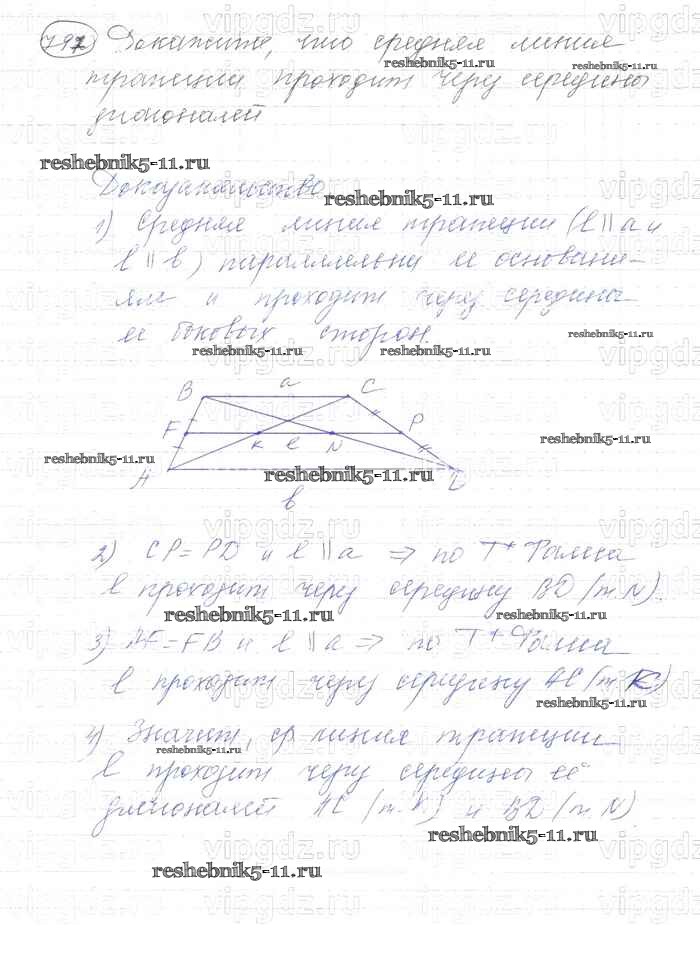 797 Докажите, что средняя линия
reshebnik5-11.ru
reshebnik5-11.ru
трапеции проходит через середины
диагоналей
reshebnik5-11.ru
Доказательство
reshebnik5-11.ru
1) Средняя линия трапеции (l || a и
l || b) параллельна ее основани-
ям и проходит через середины
ее боковых сторон.
reshebnik5-11.ru
reshebnik5-11.ru
reshebnik5-11.ru
B a C
F K l N P
reshebnik5-11.ru
reshebnik5-11.ru
A reshebnik5-11.ru D
b
vipgdz.ru
2) CP = PD и l || a => по Т. Фалеса
l проходит через середину BD (т. N).
reshebnik5-11.ru
reshebnik5-11.ru
3) AF = FB и l || a => по Т. Фалеса
l проходит через середину AC (т. K)
reshebnik5-11.ru
4) Значит, ср линия трапеции
reshebnik5-11.ru
l проходит через середины ее
диагоналей AC (т. K) и BD (т. N)
reshebnik5-11.ru
reshebnik5-11.ru
vipgdz.ru